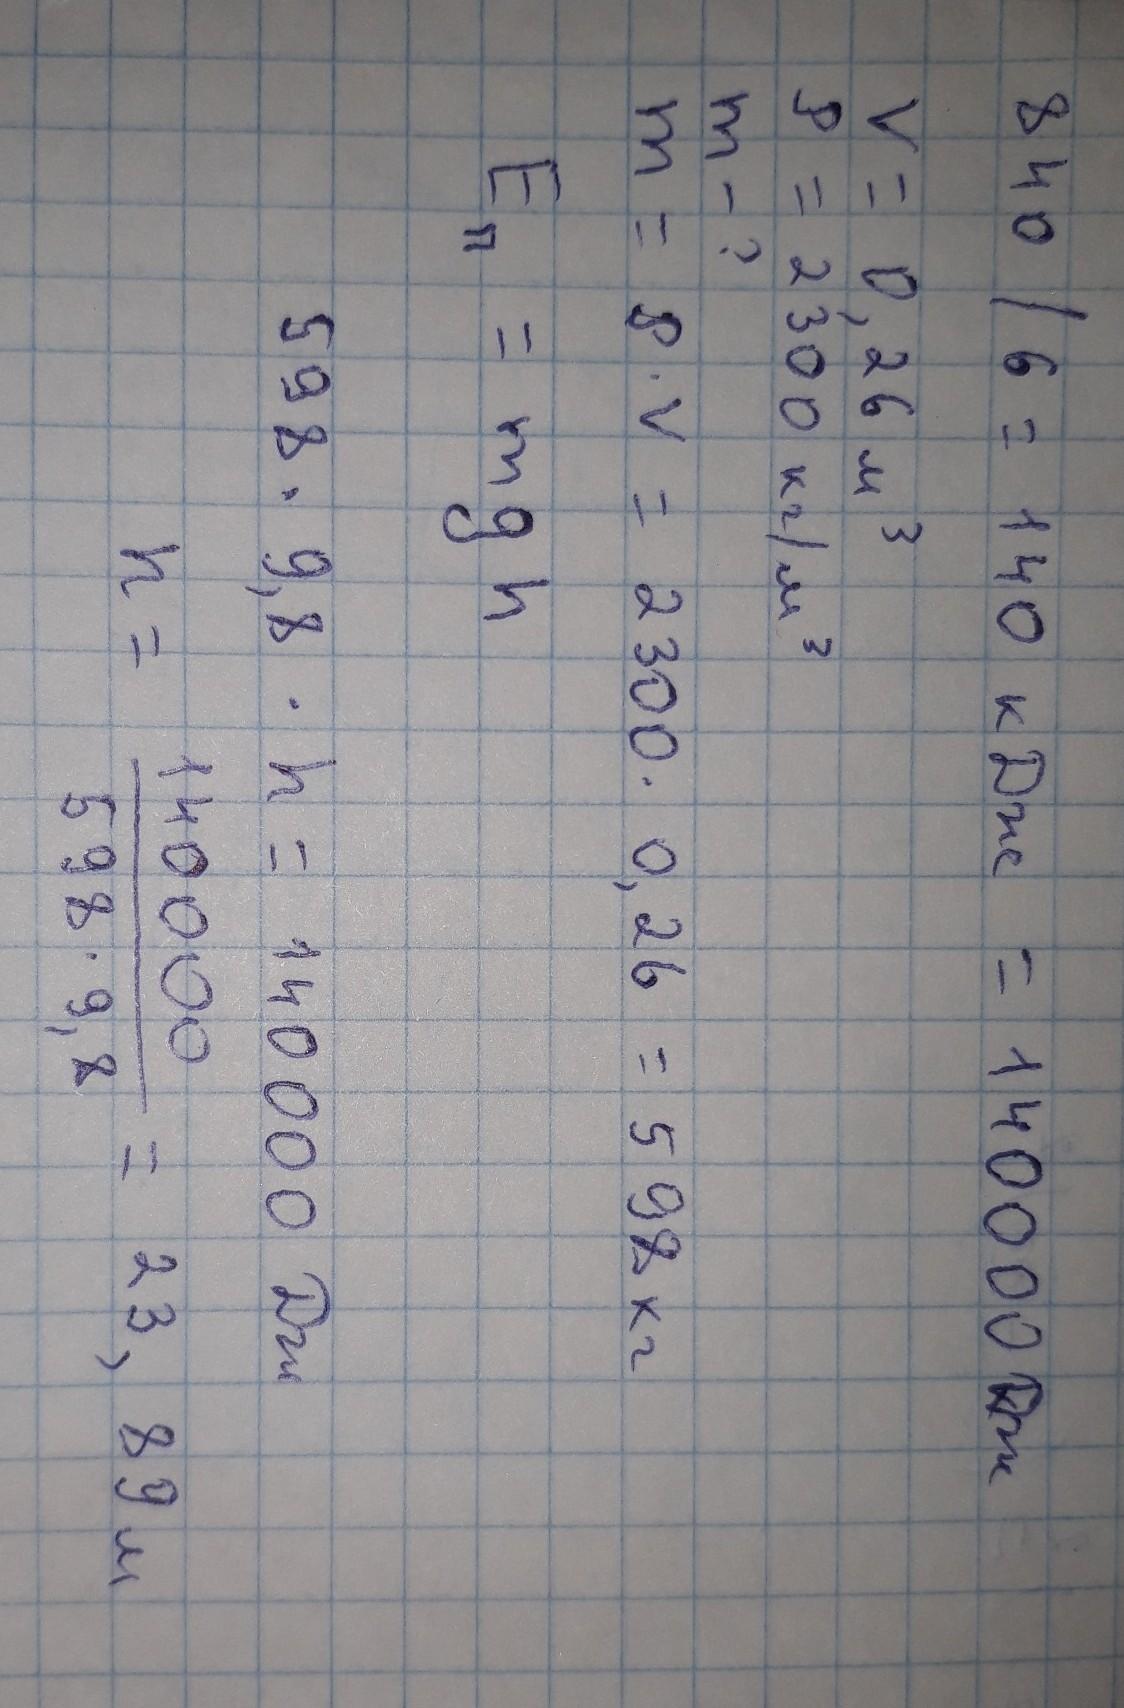 840/6 = 140 кДж = 140000 Дж
V = 0,26 м³
ρ = 2300 кг/м³
m - ?
m = ρ·V = 2300·0,26 = 598 кг
Eп = mgh
598·9,8·h = 140000 Дж
h = 140000 / 598·9,8 = 23,89 м